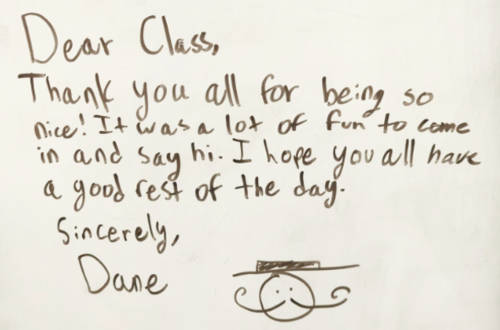 Dear Class,
Thank you all for being so
nice! It was a lot of fun to come
in and say hi. I hope you all have
a good rest of the day.
Sincerely,
Dane